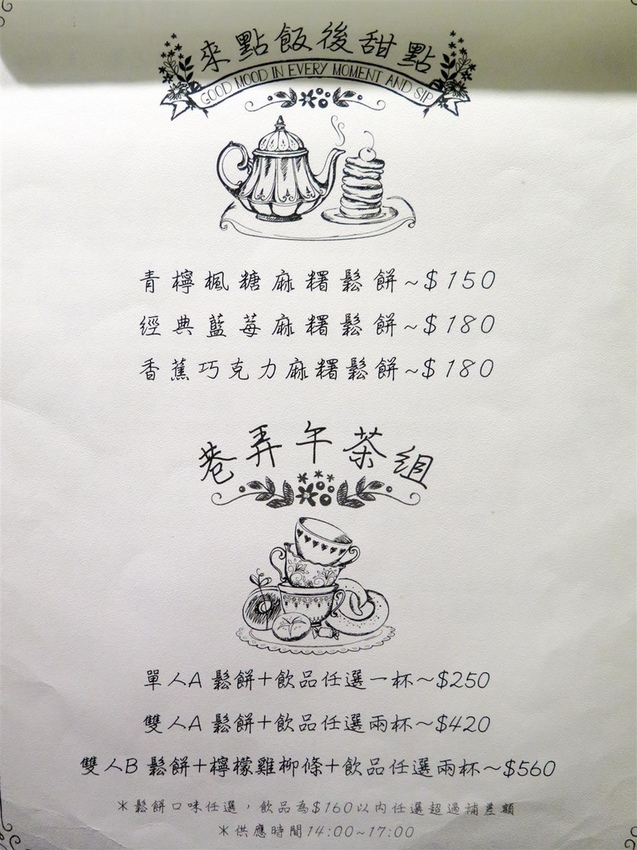 來點飯後甜點
GOOD MOOD IN EVERY MOMENT AND SIP
青檸楓糖麻糬鬆餅~$150
經典藍莓麻糬鬆餅~$180
香蕉巧克力麻糬鬆餅~$180
巷弄午茶組
單人A 鬆餅+飲品任選一杯~$250
雙人A 鬆餅+飲品任選兩杯~$420
雙人B 鬆餅+檸檬雞柳條+飲品任選兩杯~$560
*鬆餅口味任選,飲品為$160以內任選超過補差額
*供應時間14:00~17:00